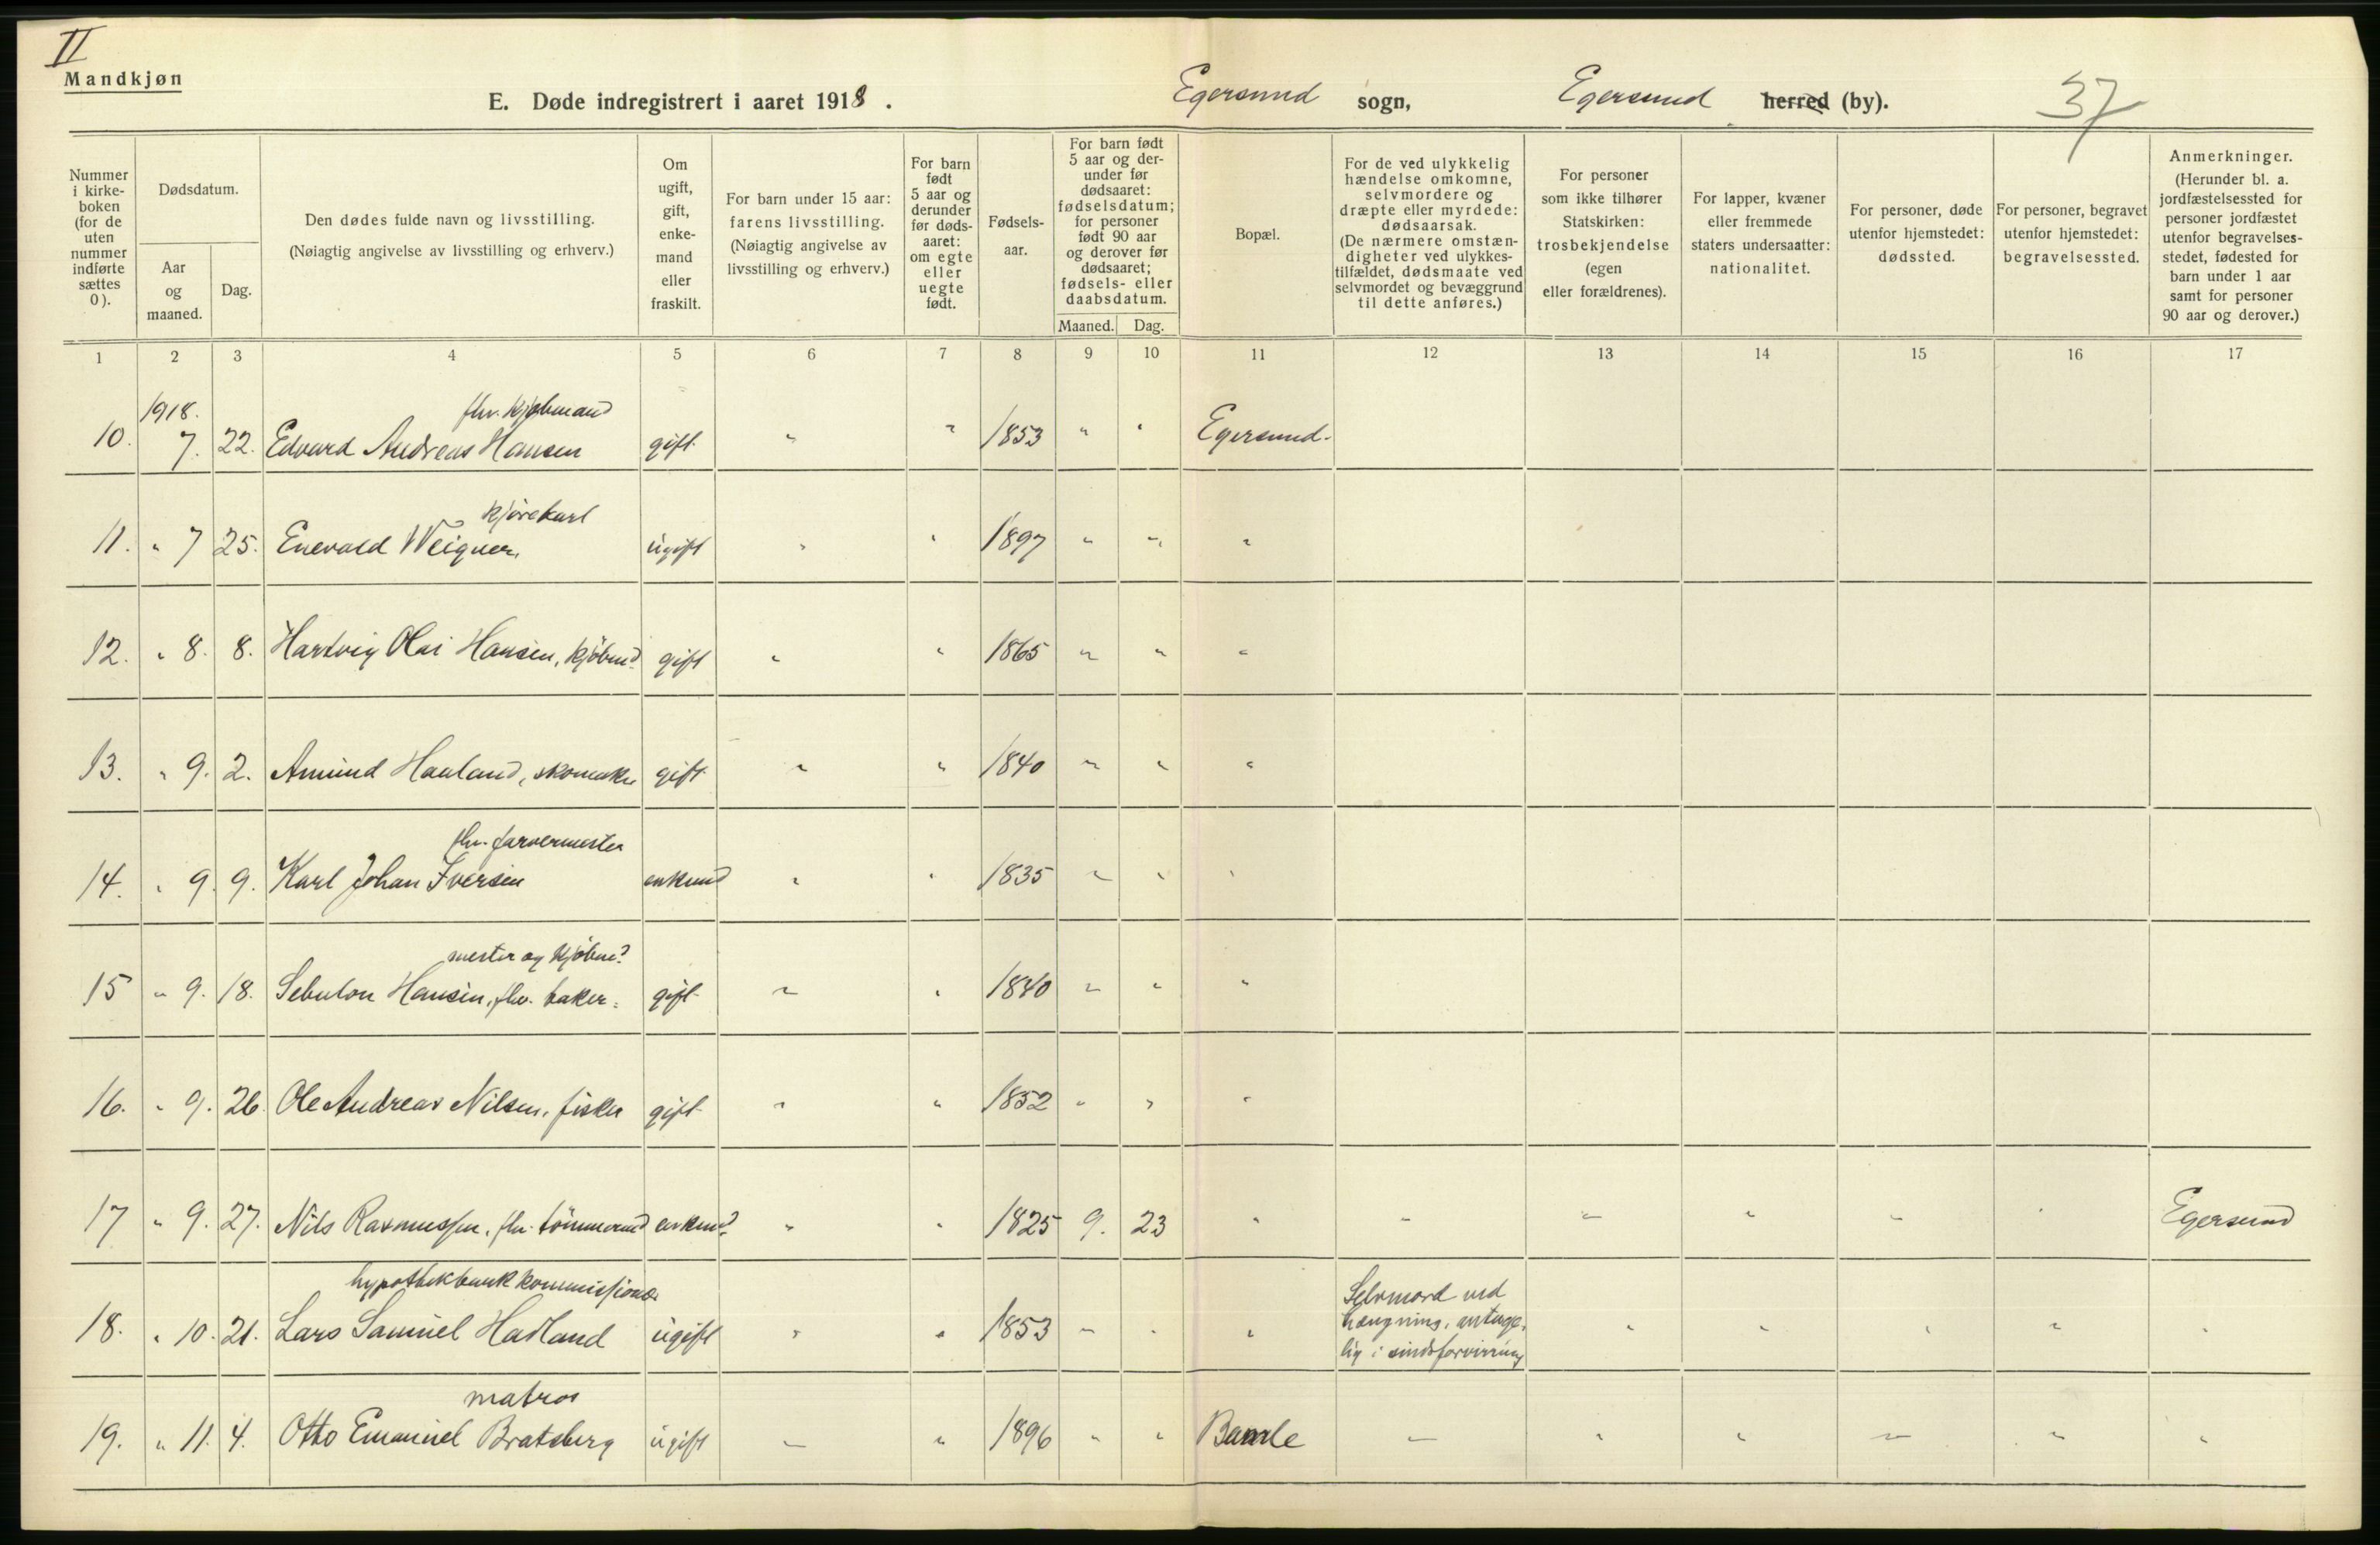 II
Mandkjøn
E. Døde indregistrert i aaret 1918.
Egersund sogn, Egersund herred (by).
37
Nummer i kirke-boken (for de uten nummer indførte sættes 0).
Dødsdatum.
Aar og maaned.
Dag.
Den dødes fulde navn og livsstilling.
(Nøiagtig angivelse av livsstilling og erhverv.)
Om ugift, gift, enke-mand eller fraskilt.
For barn under 15 aar: farens livsstilling.
(Nøiagtig angivelse av livsstilling og erhverv.)
For barn født 5 aar og derunder før døds-aaret: om egte eller uegte født.
Fødsels-aar.
For barn født 5 aar og der-under før dødsaaret: fødselsdatum; for personer født 90 aar og derover før dødsaaret; fødsels- eller daabsdatum.
Maaned. Dag.
Bopæl.
For de ved ulykkelig hændelse omkomne, selvmordere og dræpte eller myrdede: dødsaarsak.
(De nærmere omstæn-digheter ved ulykkes-tilfældet, dødsmaate ved selvmordet og bevæggrund til dette anføres.)
For personer som ikke tilhører Statskirken: trosbekjendelse (egen eller forældrenes).
For lapper, kvæner eller fremmede staters undersaatter: nationalitet.
For personer, døde utenfor hjemstedet: dødssted.
For personer, begravet utenfor hjemstedet: begravelsessted.
Anmerkninger.
(Herunder bl. a. jordfæstelsessted for personer jordfæstet utenfor begravelses-stedet, fødested for barn under 1 aar samt for personer 90 aar og derover.)
1 2 3 4 5 6 7 8 9 10 11 12 13 14 15 16 17
1918. fhv. kjøbmand
10. 7. 22. Edvard Andreas Hansen gift " " 1853 " " Egersund.
kjørekarl
11. " 7 25. Enevald Weigner, ugift " " 1897 " " "
12. " 8. 8. Hartvig Olai Hansen, kjøbmd gift " " 1865 " " "
13. " 9. 2. Amund Haaland, skomaker gift " " 1840 " " "
fhv. farvermester
14. " 9. 9. Karl Johan Iversen enkemd " " 1835 " " "
mester og kjøbmd
15 " 9. 18. Sebulon Hansen, fhv. baker= gift " " 1840 " " "
16. " 9. 26. Ole Andreas Nilsen, fisker gift " " 1852 " " "
17 " 9. 27. Nils Rasmussen, fhv. tømmermd enkemd " " 1825 9. 23 " " " " " " Egersund
hypothekbankkommissionær
18. " 10. 21. Lars Samuel Hadland ugift " " 1853 " " " Selvmord ved
hængning, antage-
lig i sindsforvirring " " " " "
matros
19. " 11. 4. Otto Emanuel Bratsberg ugift " " 1896 " " Bamle " " " " " "